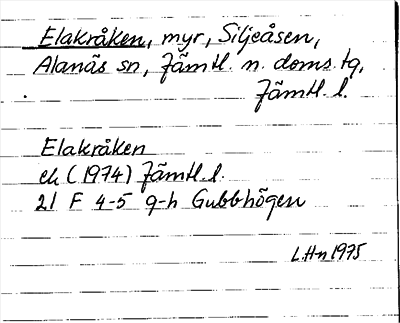 Elakråken, myr, Siljeåsen,
Alanäs sn, Jämtl. n. doms. tg,
Jämtl. l.
Elakråken
ek (1974) Jämtl. l.
21 F 4-5 g-h Gubbhögen
L Hn 1975